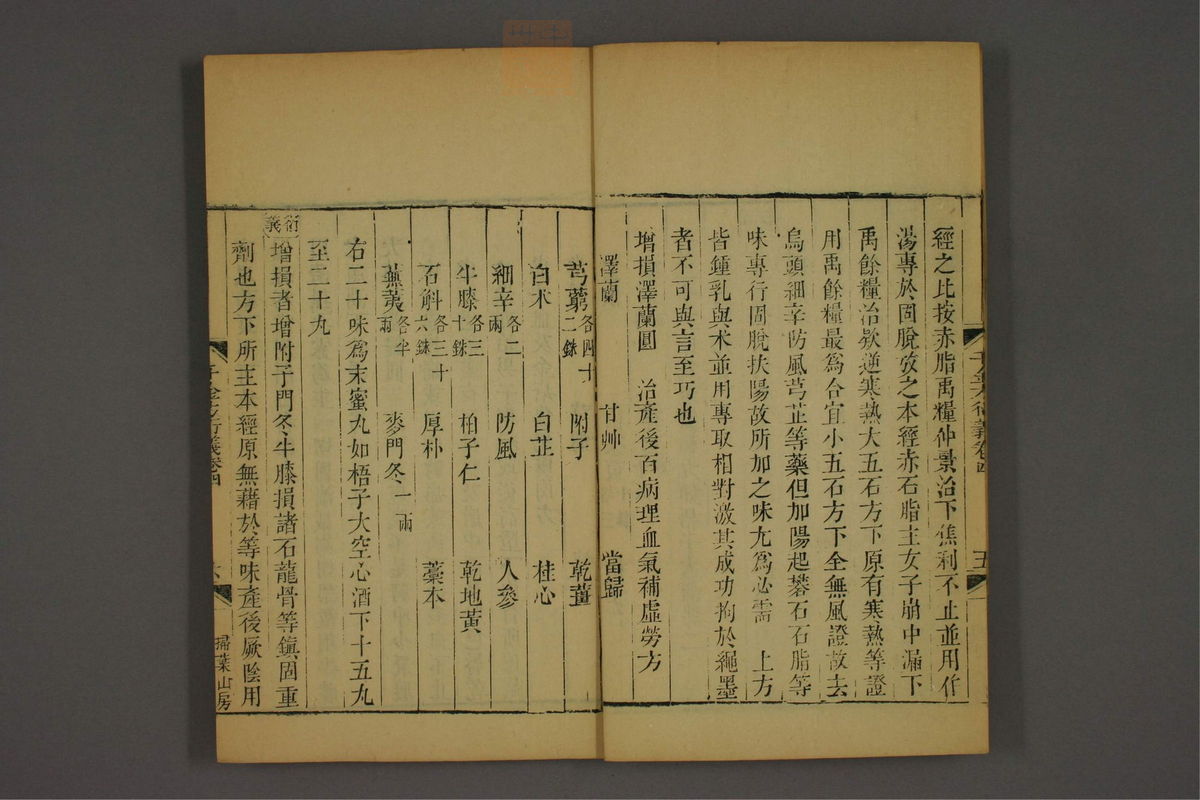 經之比按赤脂禹糧仲景治下焦利不止並用作
湯專於固脫攷之本經赤石脂主女子崩中漏下
禹餘糧治欬逆寒熱大五石方下原有寒熱等證
用禹餘糧最為合宜小五石方下全無風證故去
烏頭細辛防風芎芷等藥但加陽起礬石石脂等
味專行固脫扶陽故所加之味尤為必需　上方
皆鍾乳與朮並用專取相對激其成功拘於繩墨
者不可與言至巧也
增損澤蘭圓　治產後百病理血氣補虛勞方
澤蘭　甘艸　當歸
芎藭各四十二銖　附子　乾薑
白朮　白芷　桂心
細辛各二兩　防風　人參
牛膝各三十銖　柏子仁　乾地黃
石斛各三十六銖　厚朴　藁本
蕪荑各半兩　麥門冬一兩
右二十味為末蜜丸如梧子大空心酒下十五丸
至二十丸
衍義
增損者增附子門冬牛膝損諸石龍骨等鎮固重
劑也方下所主本經原無藉於等味產後厥陰用
千金方衍義卷四
五
千金方衍義卷四
掃葉山房